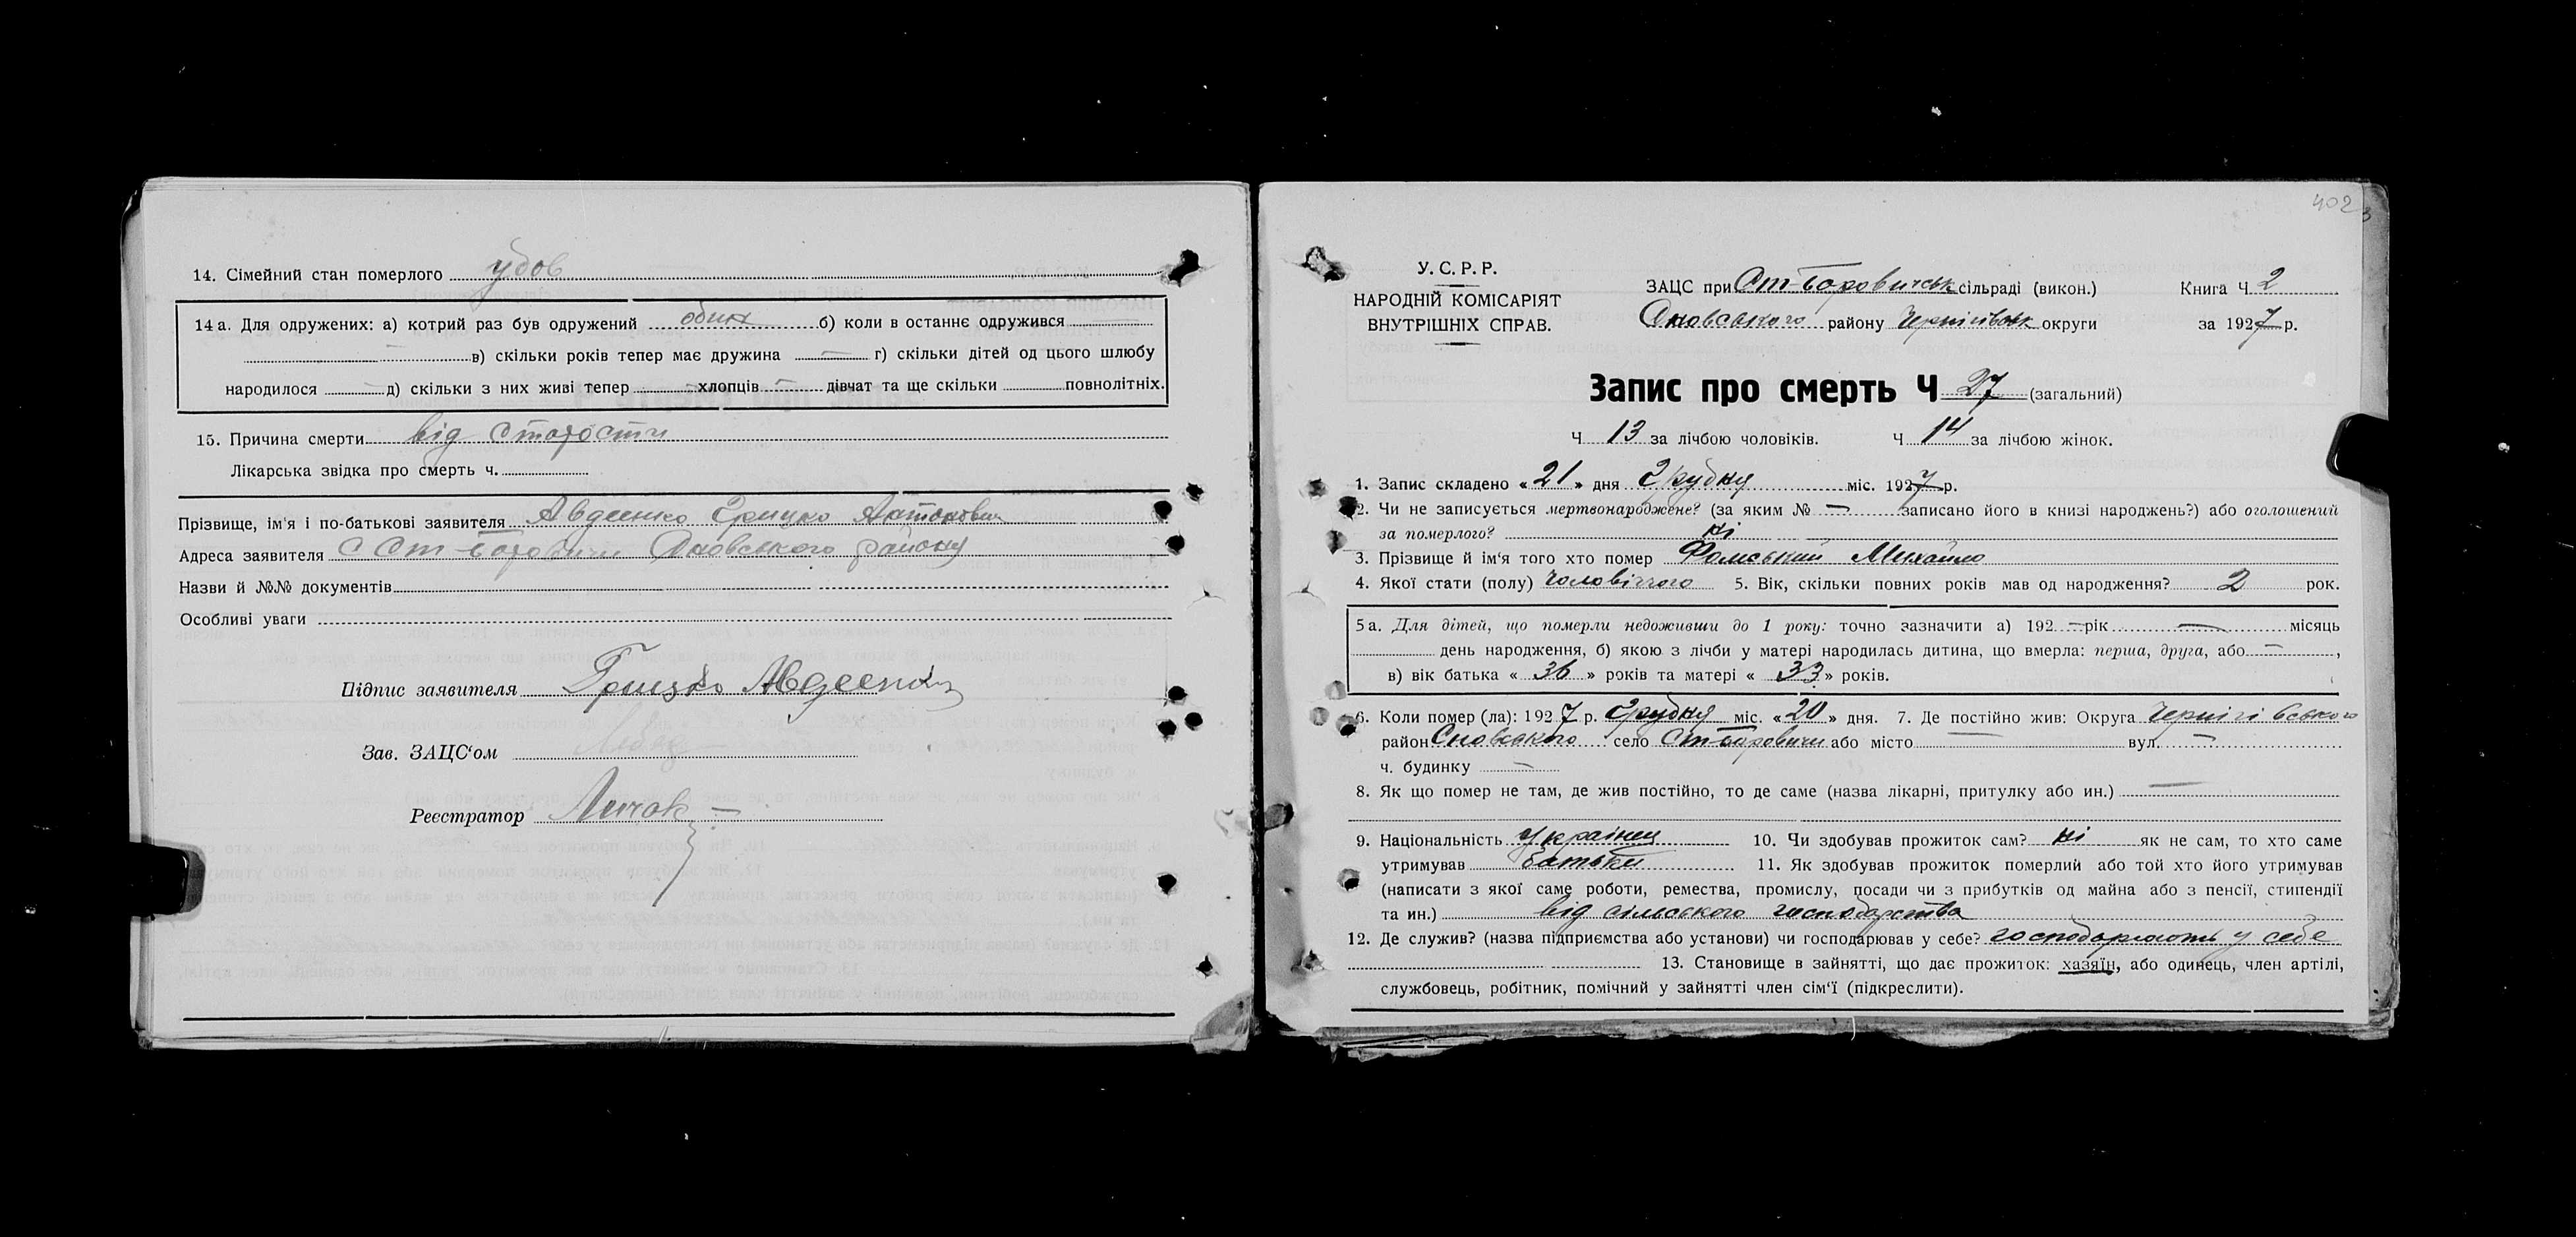 14. Сімейний стан померлого удов
14 а. Для одружених: а) котрий раз був одружений один б) коли в останнє одружився
— в) скільки років тепер має дружина — г) скільки дітей од цього шлюбу
народилося — д) скільки з них живі тепер — хлопців — дівчат та ще скільки повнолітніх.
15. Причина смерти від старости
Лікарська звідка про смерть ч.
Прізвище, ім'я і по-батькові заявителя Авдеенко Грицко Антонович
Адреса заявителя с Ст-Боровичи Сновського району
Назви й №№ документів
Особливі уваги
Підпис заявителя Грицко Авдеенко
Зав. ЗАЦС'ом
Реєстратор
402
У. С. Р. Р.
НАРОДНІЙ КОМІСАРІЯТ
ВНУТРІШНІХ СПРАВ.
ЗАЦС при Ст-Боровичськ сільраді (викон.) Книга Ч 2
Сновського району Чернігівськ округи за 1927 р.
Запис про смерть Ч 27 (загальний)
Ч 13 за лічбою чоловіків. Ч 14 за лічбою жінок.
1. Запис складено « 21 » дня Грудня міс. 1927 р.
2. Чи не записується мертвонароджене? (за яким № — записано його в книзі народжень?) або оголошений
за померлого? ні
3. Прізвище й ім'я того хто помер Михайло
4. Якої стати (полу) чоловічого 5. Вік, скільки повних років мав од народження? 2 рок.
5 а. Для дітей, що померли недоживши до 1 року: точно зазначити а) 192 — рік — місяць
день народження, б) якою з лічби у матері народилась дитина, що вмерла: перша, друга, або — ,
в) вік батька « 36 » років та матері « 33 » років.
6. Коли помер (ла): 1927 р. Грудня міс. « 20 » дня. 7. Де постійно жив: Округа Чернігівського
район Сновського село Ст-Боровичи або місто — вул. —
ч. будинку —
8. Як що помер не там, де жив постійно, то де саме (назва лікарні, притулку або ин.) —
9. Національність Українец 10. Чи здобував прожиток сам? ні як не сам, то хто саме
утримував батьки 11. Як здобував прожиток померлий або той хто його утримував
(написати з якої саме роботи, ремества, промислу, посади чи з прибутків од майна або з пенсії, стипендії
та ин.) від сільського господарства
12. Де служив? (назва підприємства або установи) чи господарював у себе? господарюють у себе
13. Становище в зайнятті, що дає прожиток: хазяїн, або одинець, член артілі,
службовець, робітник, помічний у зайнятті член сім'ї (підкреслити).